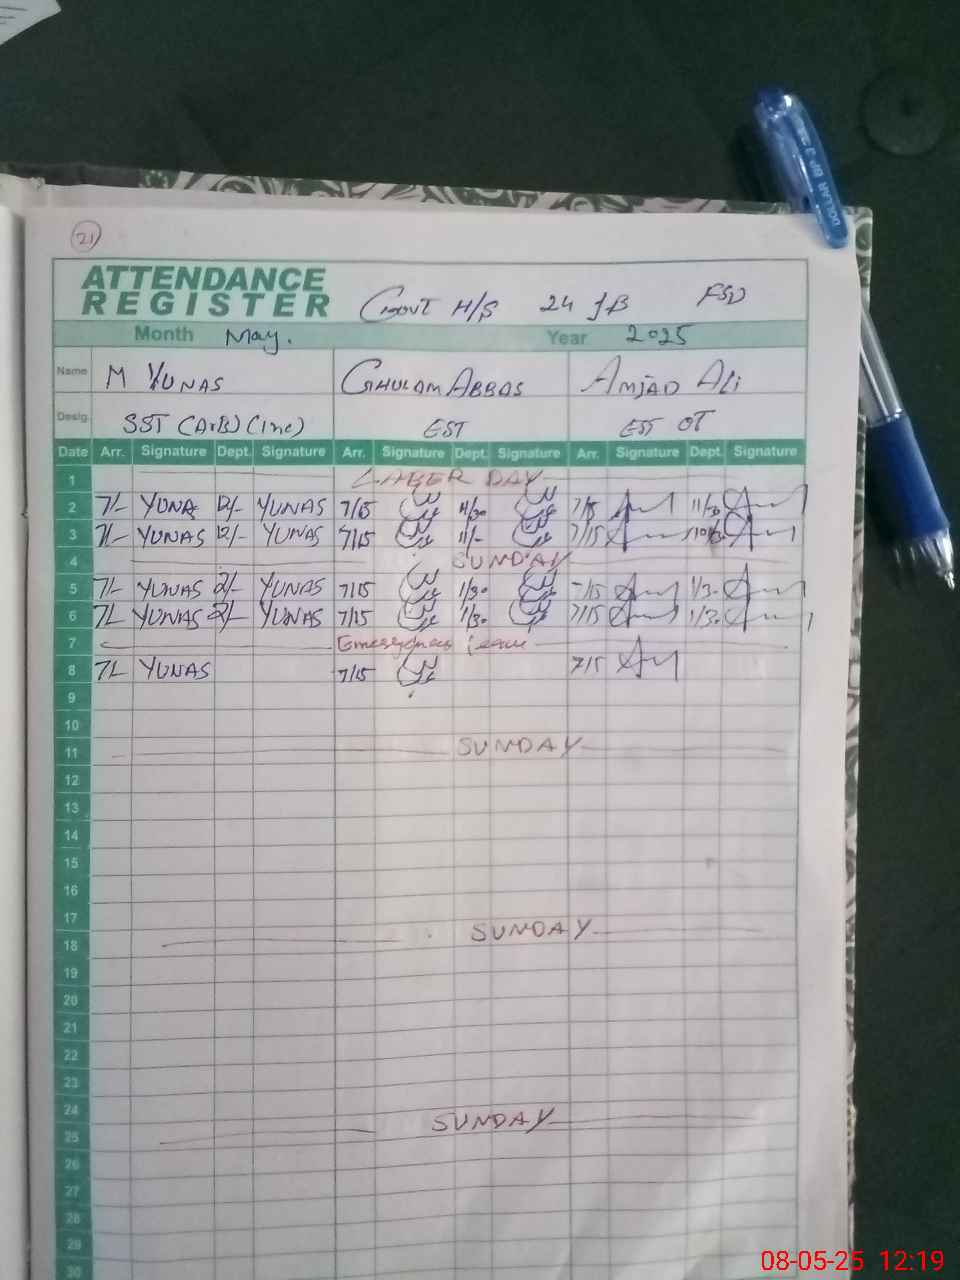 21
ATTENDANCE
REGISTER
Govt H/S 24 JB FSD
Month May. Year 2025
Name M YUNAS GHULAM ABBAS AMJAD ALi
Desig. SST (ArB) (Inc) EST EST OT
Date Arr. Signature Dept. Signature Arr. Signature Dept. Signature Arr. Signature Dept. Signature
1 LABER DAY
2 7/- YUNA 12/- YUNAS 7/15 11/30 7/15 11/30
3 7/- YUNAS 12/- YUNAS 7/15 11/- 7/15
4 SUNDAY
5 7/- YUNAS 2/- YUNAS 7/15 1/30 7/15 1/30
6 7/- YUNAS 2/- YUNAS 7/15 1/30 7/15 1/30
7 Emergency leave
8 7/- YUNAS 7/15 7/15
9
10
11 SUNDAY
12
13
14
15
16
17
18 SUNDAY
19
20
21
22
23
24
25 SUNDAY
26
27
28
29
30
DOLLAR BP 3
08-05-25 12:19